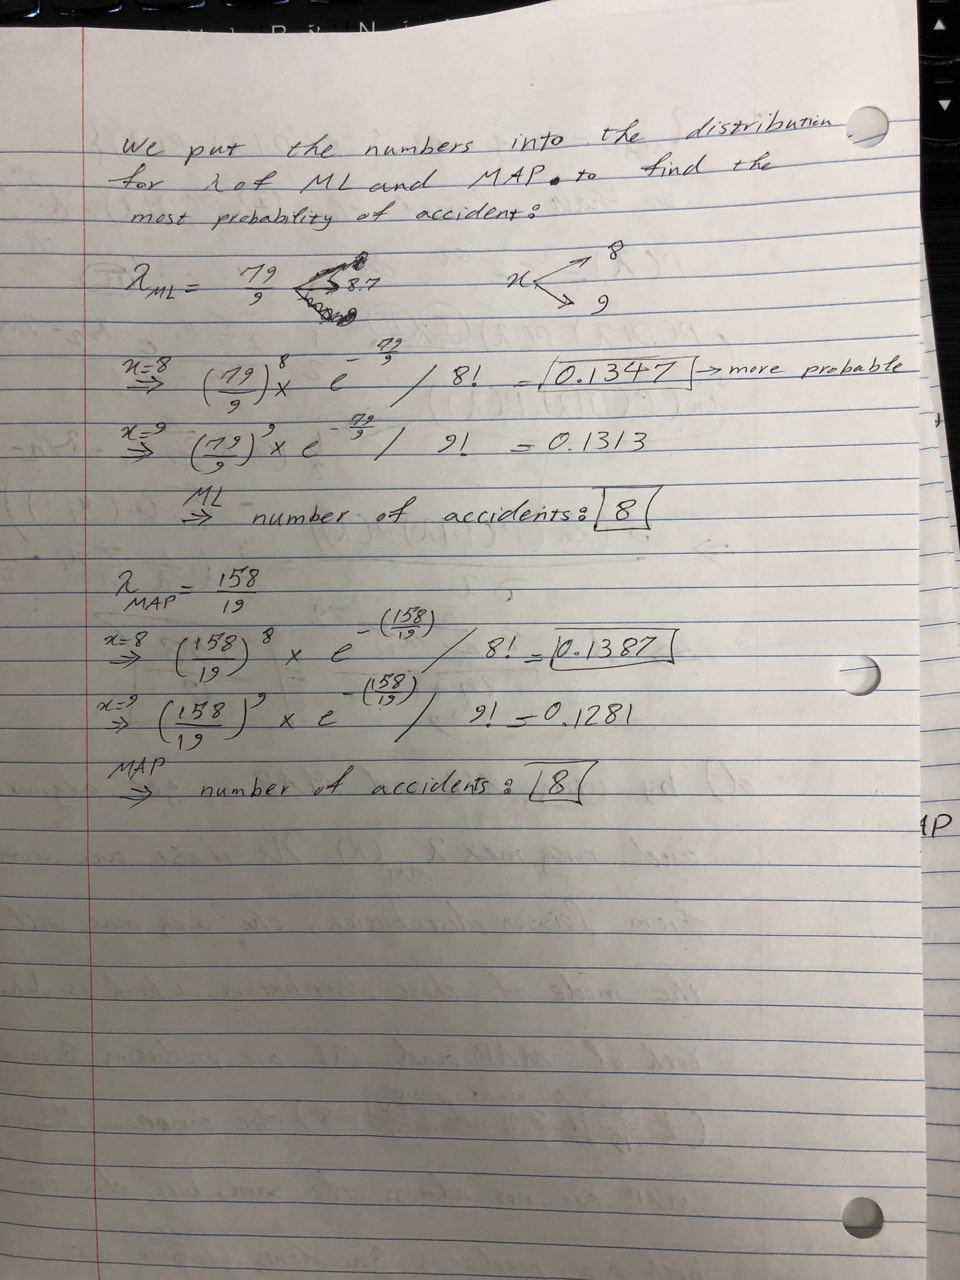 We put the numbers into the distribution
for λ of ML and MAP. to find the
most probability of accident:
λ_ML = 79/9 → 8.7 x → 8
→ 9
x=8 ⇒ (79/9)^8 × e^(-79/9) / 8! = 0.1347 → more probable
x=9 ⇒ (79/9)^9 × e^(-79/9) / 9! = 0.1313
ML ⇒ number of accidents: 8
λ_MAP = 158/19
x=8 ⇒ (158/19)^8 × e^-(158/19) / 8! = 0.1387
x=9 ⇒ (158/19)^9 × e^-(158/19) / 9! = 0.1281
MAP ⇒ number of accidents: 8